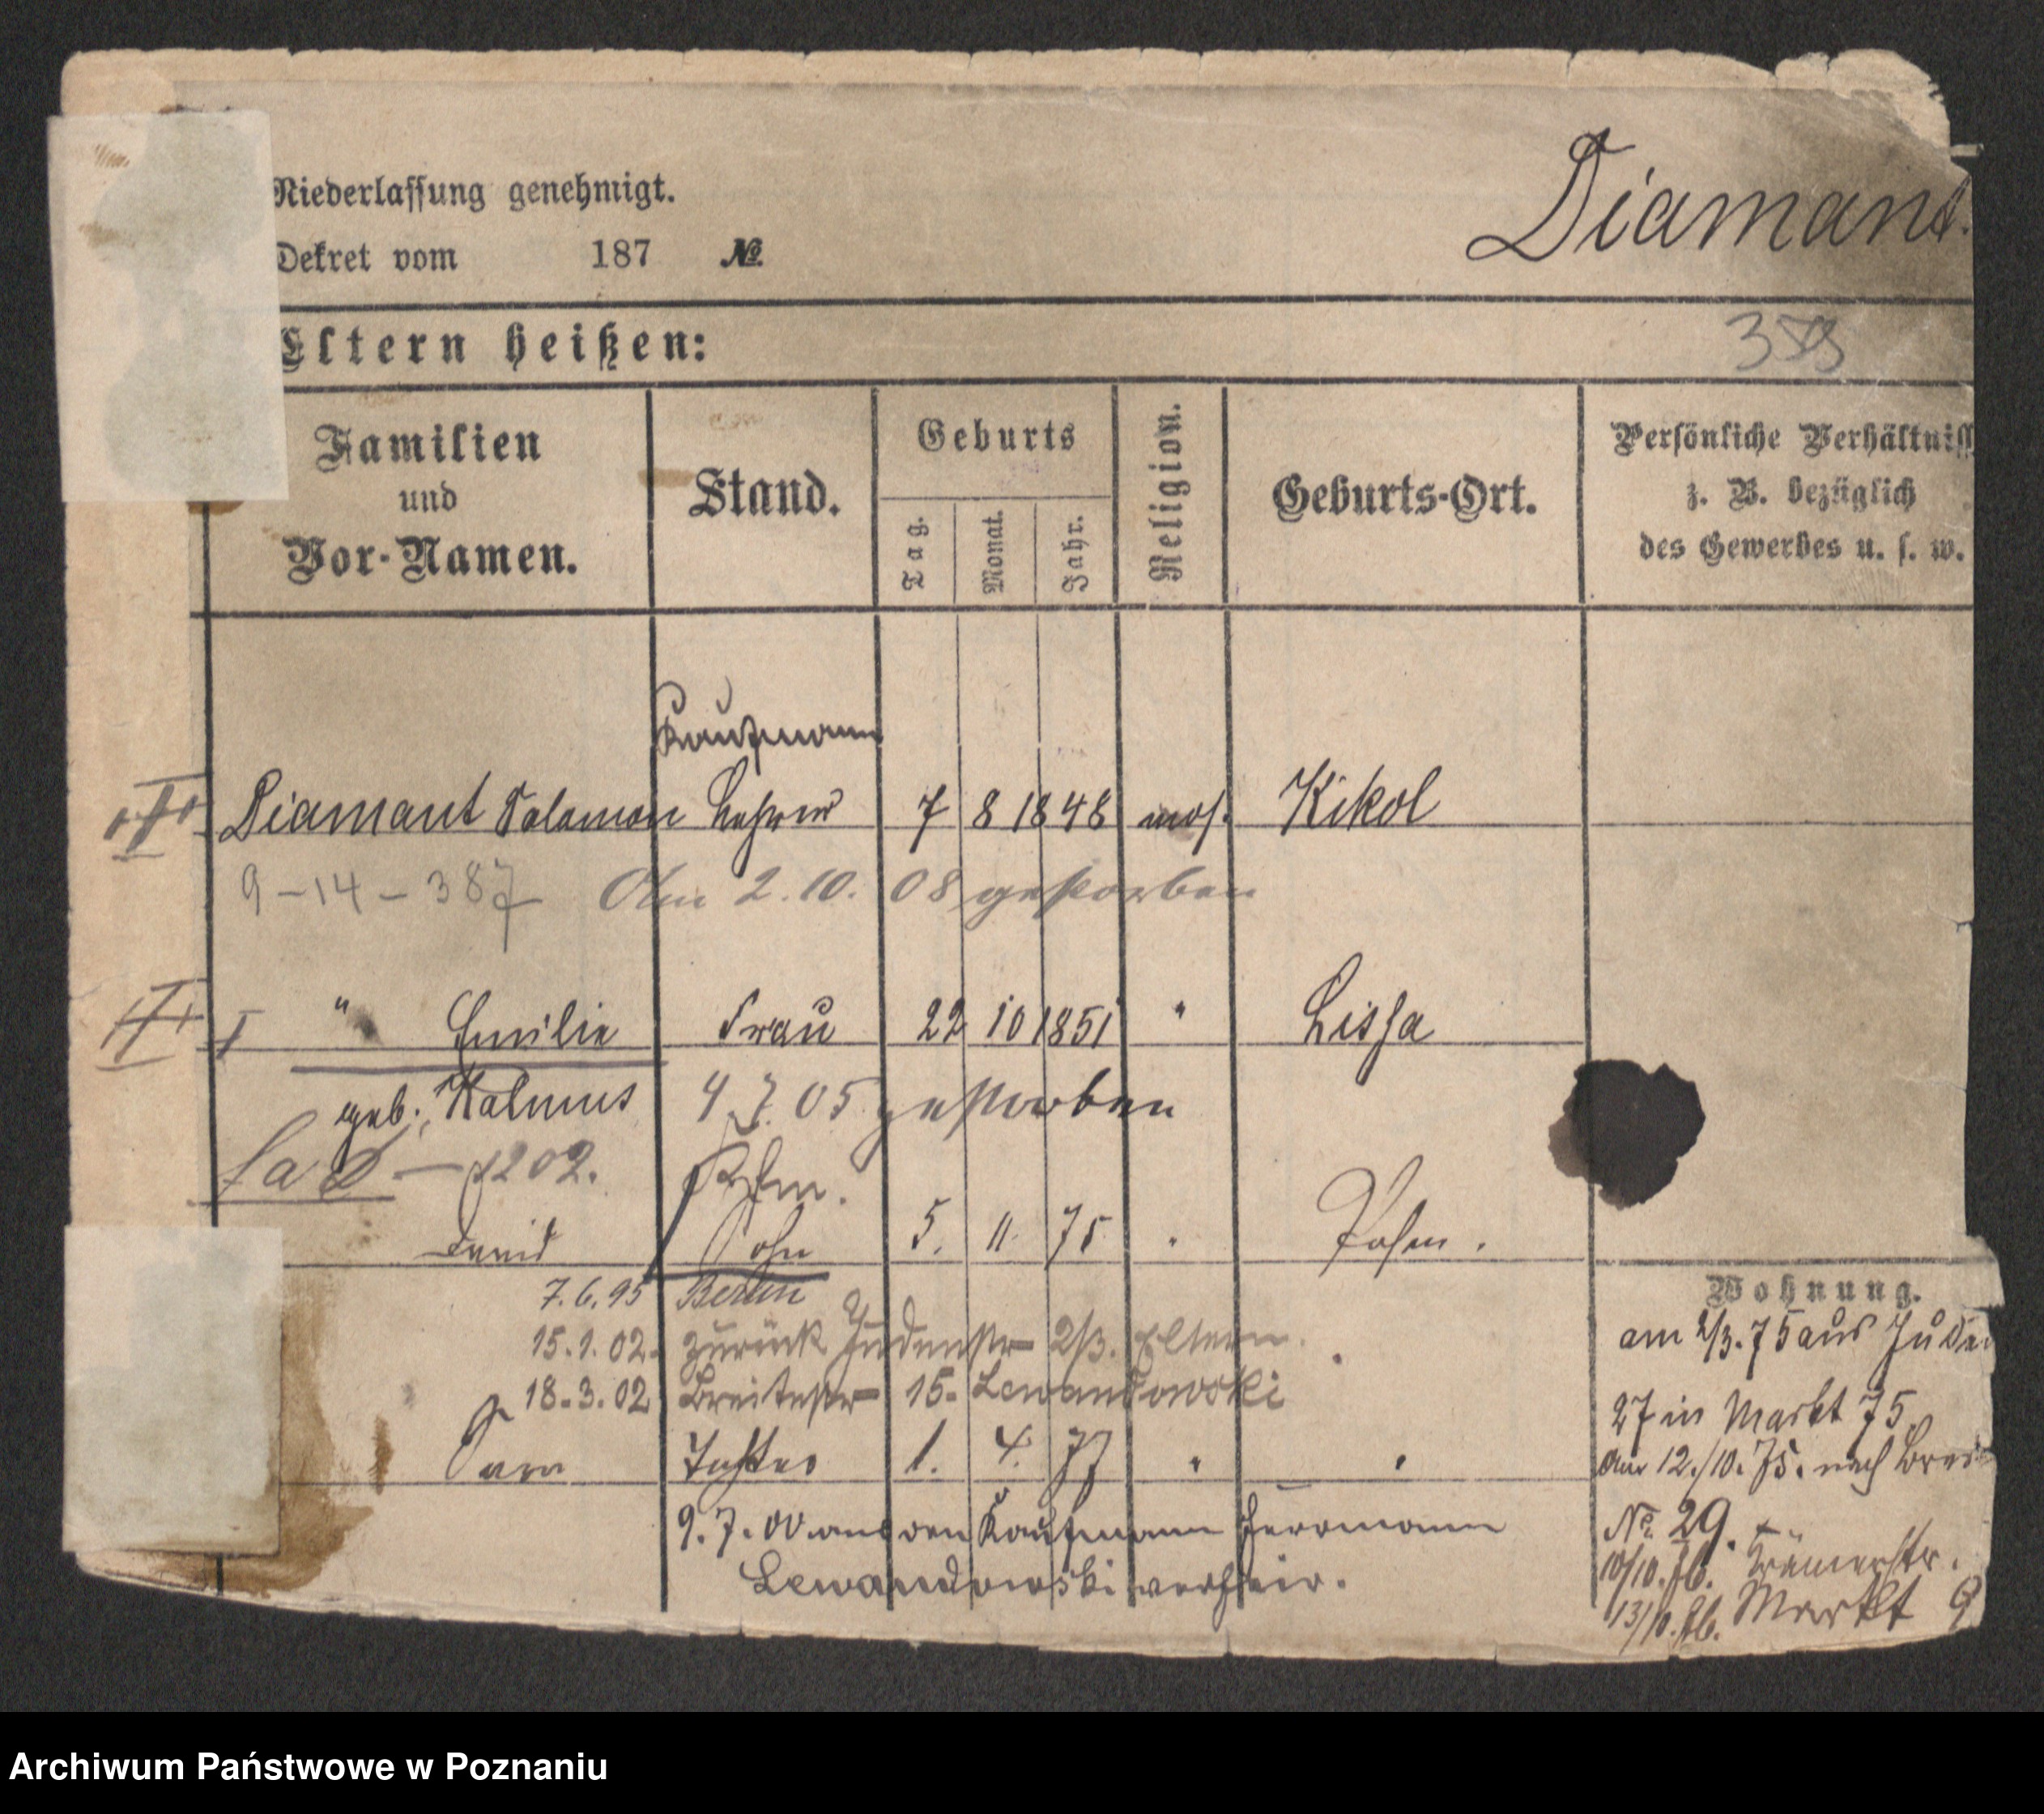 Niederlassung genehmigt.
Diamant.
Dekret vom 187 №
Eltern heißen:
Familien und Vor-Namen.
Stand.
Geburts
Tag. Monat. Jahr.
Religion.
Geburts-Ort.
Persönliche Verhältniss
z. B. bezüglich
des Gewerbes u. s. w.
Kaufmann
Diamant Salamon Lehrer 7 8 1848 mos. Kikol
9-14-387 Am 2.10.08 gestorben
" Emilie Frau 22 10 1851 " Lissa
geb. Kalmus 4.7.05 gestorben
Kfm.
David Sohn 5. 11. 75 " Posen.
7.6.95 Berlin
15.1.02. zurück Judenstr 2/3. Eltern.
18.3.02 Breitestr 15. Lewandowski
Sara Tochter 1. 4. 77 " "
9.7.00 an den Kaufmann Herrmann
Lewandowski verheir.
Wohnung.
am 2/3.75 aus Juden
27 in Markt 75.
Am 12./10.75. nach Brei
No. 29.
10/10.76. Krämerstr.
13/10.76. Markt 9
Archiwum Państwowe w Poznaniu